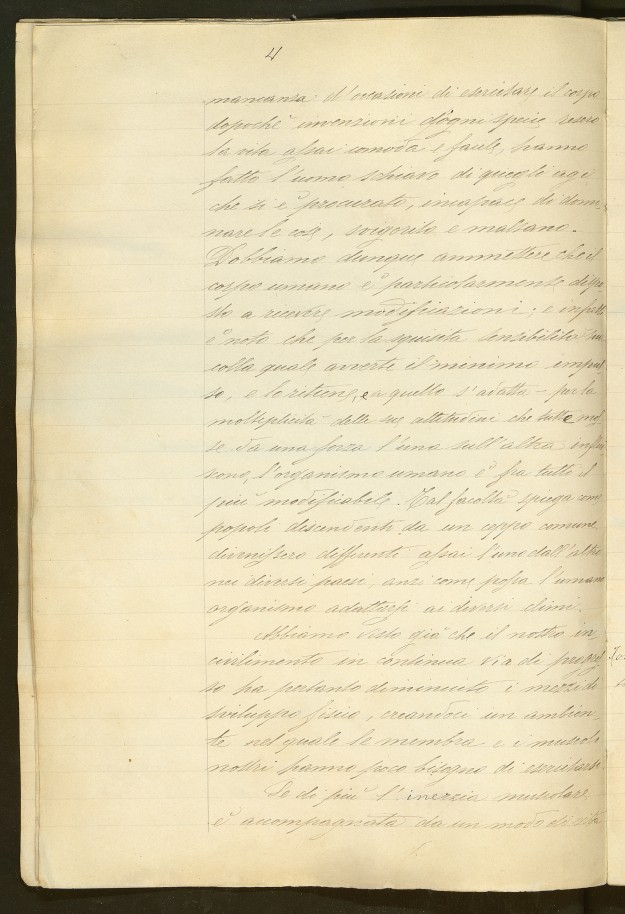 4
mancanza d'occasioni di esercitare il corpo
dopochè invenzioni d'ogni specie resero
la vita assai comoda e facile, hanno
fatto l'uomo schiavo di quegli agi
che si è procurato, incapace di domi-
nare le cose, svigorito e malsano.
Dobbiamo dunque ammettere che il
corpo umano è particolarmente dispo
sto a ricevere modificazioni; e infatti
è noto che per la squisita sensibilità
colla quale avverte il minimo impul
so, e lo ritiene, e a quello s'adatta - per la
moltiplicità delle sue attitudini che tutte mos
se da una forza l'una sull'altra influi
scono, l'organismo umano è fra tutti il
più modificabile. Tal facoltà spiega come
popoli discendenti da un ceppo comune
divenissero differenti assai l'uno dall'altro
nei diversi paesi, anzi come possa l'umano
organismo adattarsi ai diversi climi.
Abbiamo visto già che il nostro in
civilimento in continua via di progres
so ha pertanto diminuito i mezzi di
sviluppo fisico, creandoci un ambien
te nel quale le membra e i muscoli
nostri hanno poco bisogno di esercitarsi
Se di più l'inerzia muscolare
è accompagnata da un modo di vita